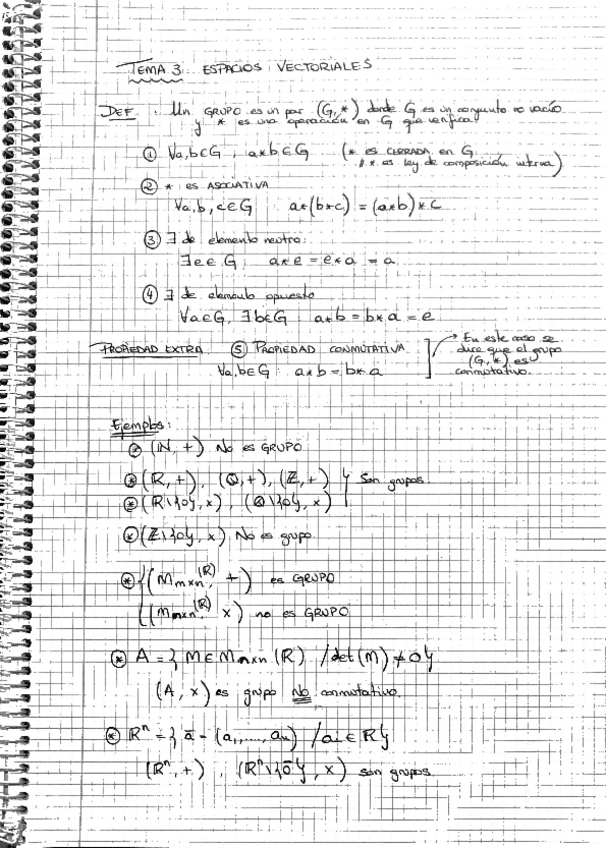 TEMA 3. ESPACIOS VECTORIALES
DEF: Un GRUPO es un par (G,*) donde G es un conjunto no vacío
y * es una operación en G que verifica:
① ∀a,b∈G, a*b∈G (* es CERRADA en G
* es ley de composición interna)
② * es ASOCIATIVA
∀a,b,c∈G a*(b*c) = (a*b)*c
③ ∃ de elemento neutro:
∃e∈G a*e = e*a = a
④ ∃ de elemento opuesto
∀a∈G, ∃b∈G a*b = b*a = e
PROPIEDAD EXTRA ⑤ PROPIEDAD CONMUTATIVA
∀a,b∈G a*b = b*a
→ En este caso se
dice que el grupo
(G,*) es
conmutativo.
Ejemplos:
⊛ (ℕ,+) No es GRUPO
⊛ (ℝ,+), (ℚ,+), (ℤ,+) } Son grupos
⊛ (ℝ\{0}, x), (ℚ\{0}, x)
⊛ (ℤ\{0}, x) No es grupo
⊛ { (Mmxn(ℝ), +) es GRUPO
(Mmxn(ℝ), x) no es GRUPO
⊛ A = { M∈Mnxn(ℝ) / det(M) ≠ 0 }
(A, x) es grupo NO conmutativo.
⊛ ℝⁿ = { ā = (a₁,...,aₙ) / ai ∈ ℝ }
(ℝⁿ,+), (ℝⁿ\{ō}, x) son grupos.